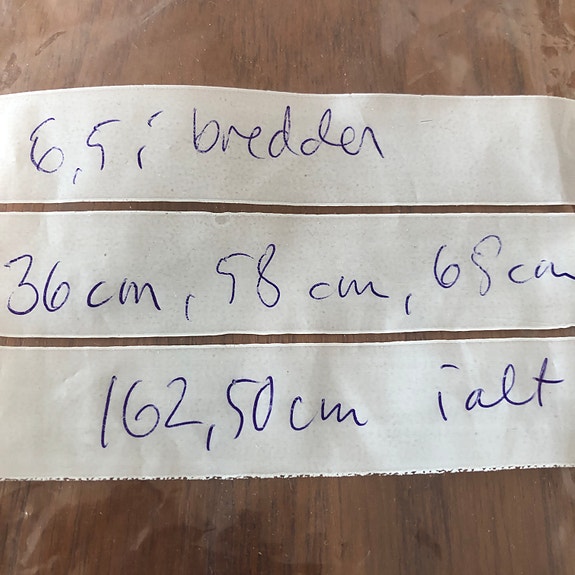 6,5 i bredden
36 cm, 58 cm, 68 cm
162,50 cm ialt